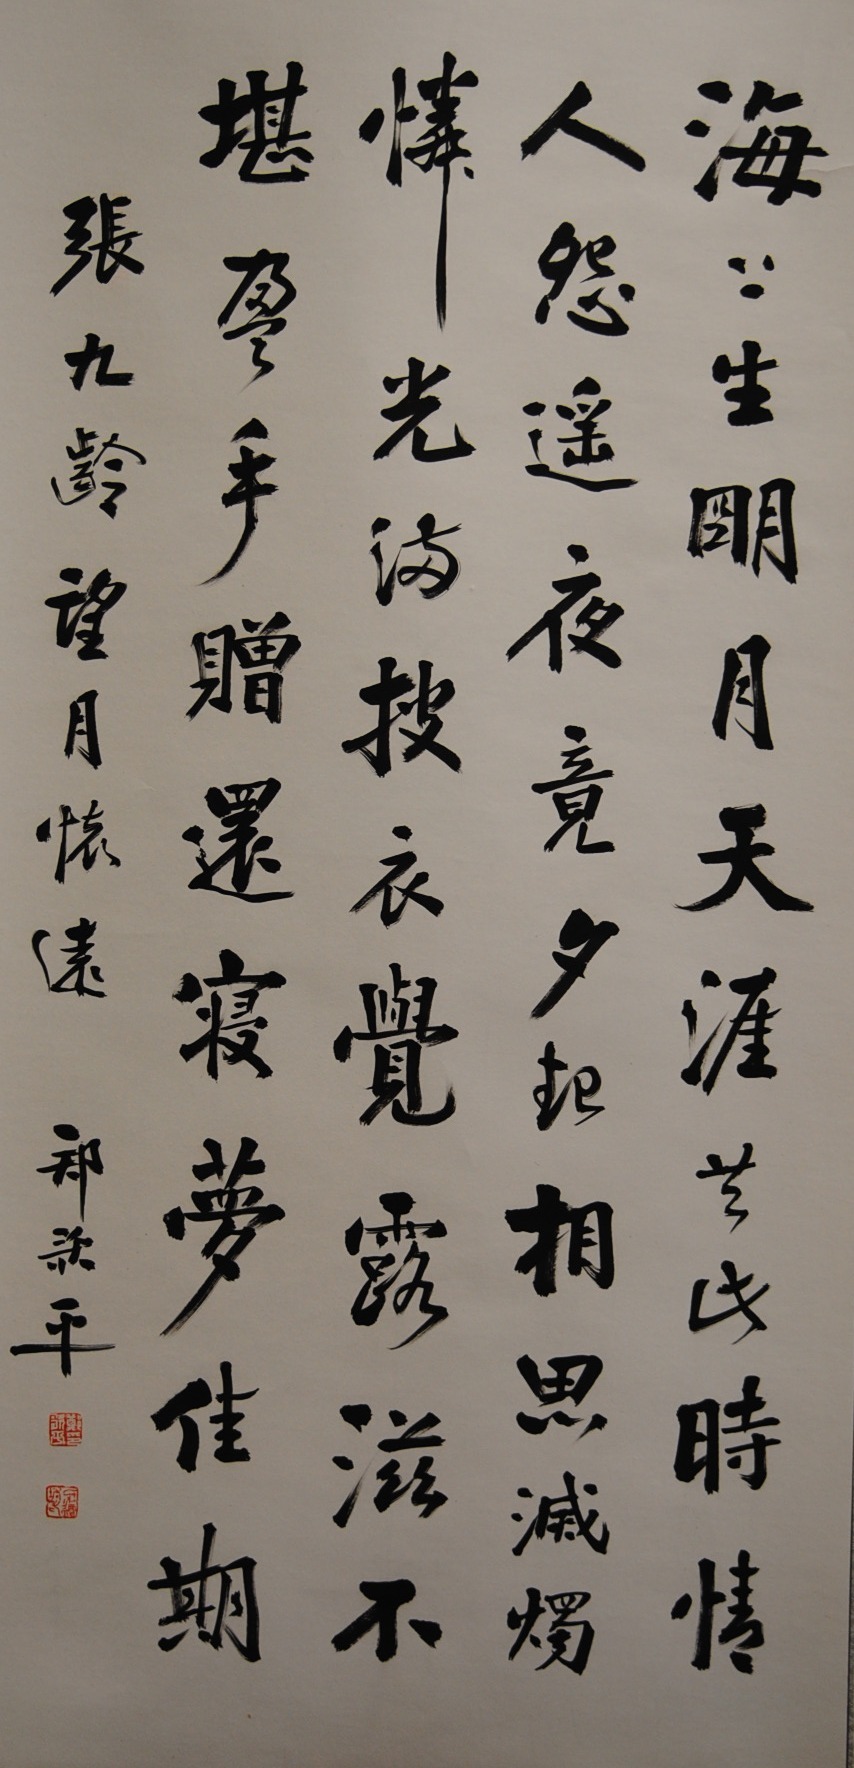 海上生明月天涯共此時情
人怨遥夜竟夕起相思滅燭
憐光滿披衣覺露滋不
堪盈手贈還寢夢佳期
張九齡望月懷遠 郑平